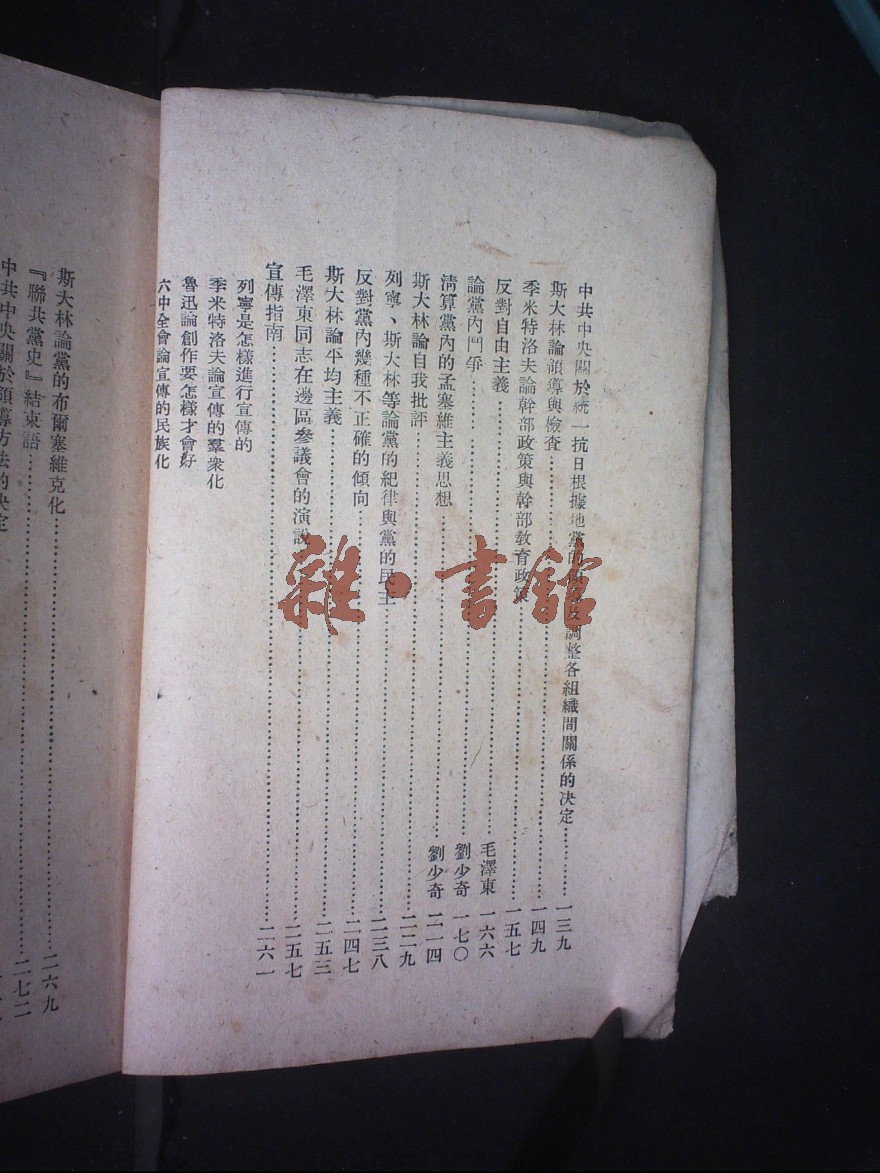 中共中央關於統一抗日根據地黨的
調整各組織間關係的决定…………一三九
斯大林論領導與檢查…………一四九
季米特洛夫論幹部政策與幹部教育政策…………一五七
反對自由主義…………毛澤東 一六六
論黨內鬥爭…………劉少奇 一七〇
淸算黨內的孟塞維主義思想…………劉少奇 二一四
斯大林論自我批評…………二二九
列寧、斯大林等論黨的紀律與黨的民主…………二三八
反對黨內幾種不正確的傾向…………二四七
斯大林論平均主義…………二五三
毛澤東同志在邊區參議會的演說…………二五七
宣傳指南…………二六一
列寧是怎樣進行宣傳的
季米特洛夫論宣傳的羣衆化
魯迅論創作要怎樣才會好
六中全會論宣傳的民族化
斯大林論黨的布爾塞維克化…………二六九
『聯共黨史』結束語…………二七二
中共中央關於領導方法的决定
雜·書館